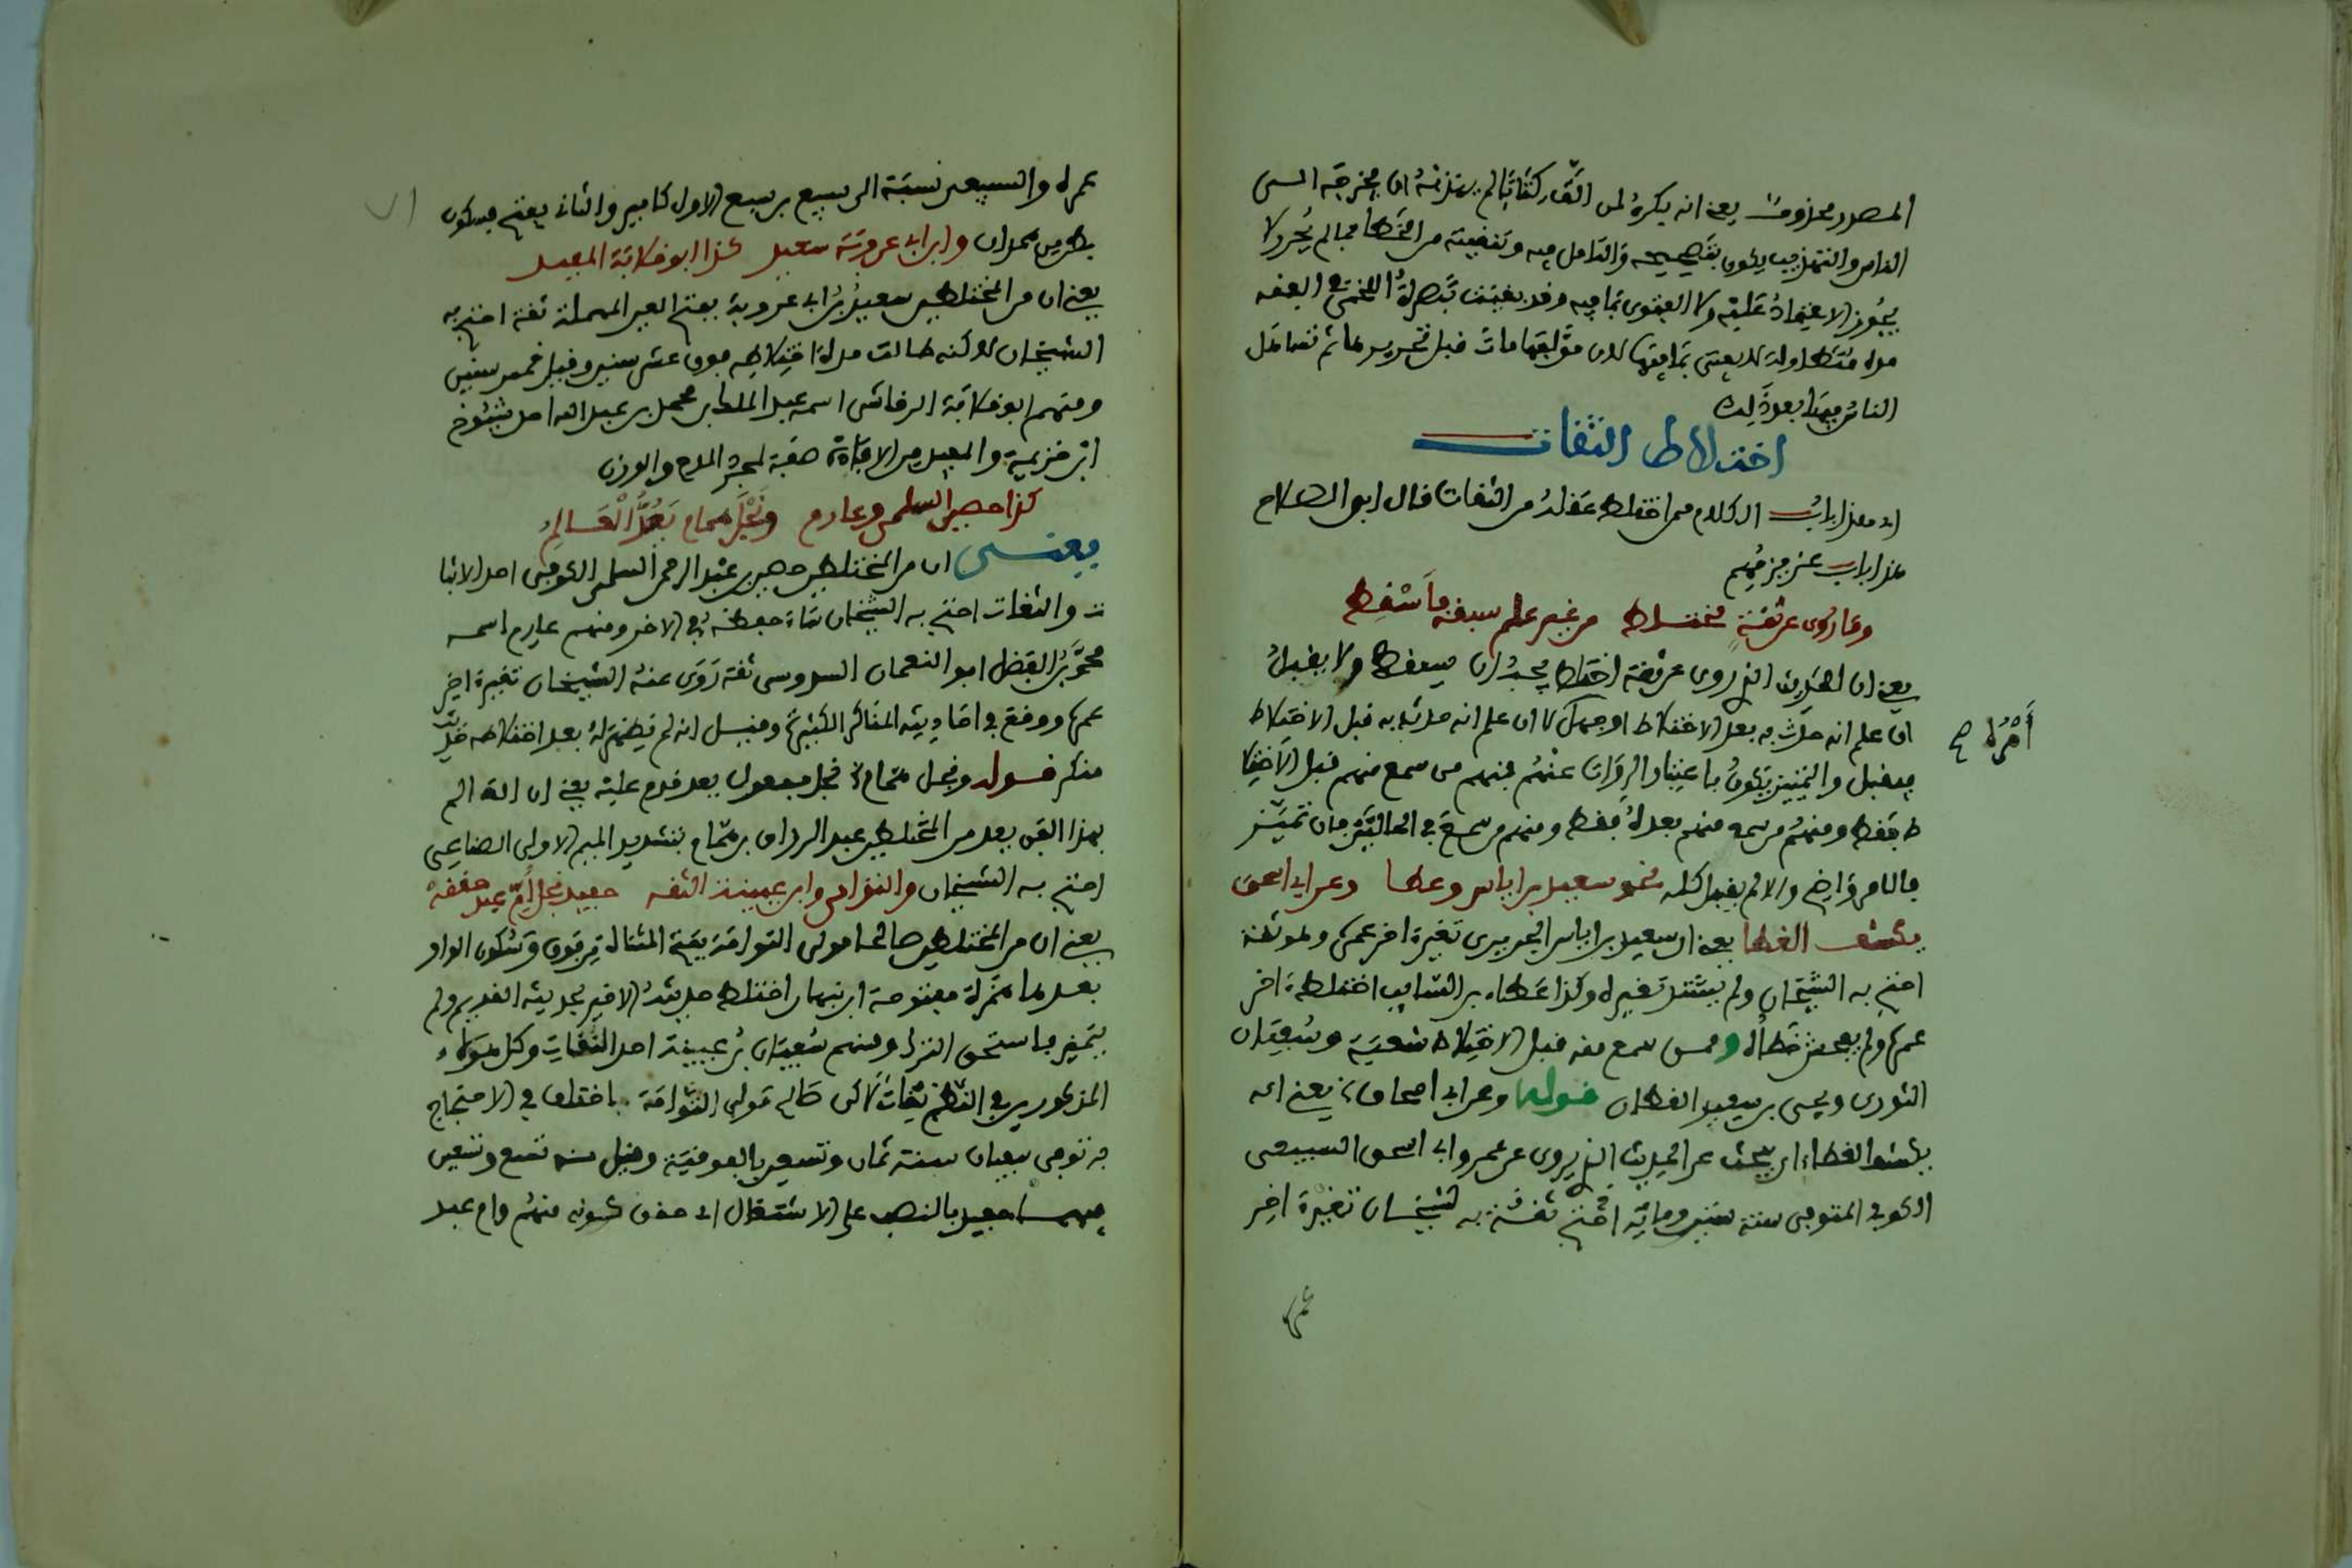 المصدر محذوفا يعني انه يكره لمن الف كتابا لم يتزنه ان يخرجه الى
الناس والتهذيب يكون بتصحيحه والتامل فيه وتنقيته من الخطأ فما لم يحرر لا
يجوز الاعتماد عليه ولا الفتوى بما فيه وقد بقيت تبصرة اللخمي في الفقه
مدة متطاولة لا يفتى بما فيها لان مؤلفها مات قبل تحريرها ثم تساهل
الناس فيها بعد ذلك
اختلاط الثقات
اي هذا باب الكلام فيمن اختلط عقله من الثقات قال ابن الصلاح
هذا باب عزيز مهم
وما روى عن ثقة مختلط من غير علم سبقه فاسقط
يعني ان الحديث الذي روى عن ثقة اختلط يجب ان يسقط ولا يقبل
ان علم انه حدث به بعد الاختلاط او جهل لا ان علم انه حدث به قبل الاختلاط
فيقبل والتمييز يكون باعتبار الرواة عنهم فمنهم من سمع منهم قبل الاختلا
ط فقط ومنهم من سمع منهم بعده فقط ومنهم من سمع في الحالتين فان تميز
فالامر واضح والا لم يقبل كله نحو سعيد بن اياس وعطا وعن ابي اسحق
يكشف الغطا يعني ان سعيد بن اياس الجريري تغير اخر عمره ولوثقته
احتج به الشيخان ولم يشتد تغيره وكذا عطاء بن السايب اختلط اخر
عمره ولم يفحش خطأه وممن سمع منه قبل الاختلاط شعبة وسفيان
الثوري ويحيى بن سعيد القطان قوله وعن ابي اسحاق يعني انه
يكشف الغطاء اي يبحث عن الحديث الذي يروى عن عمرو ابي اسحق السبيعي
الكوفي المتوفى سنة ست وماية احتج بثقته به الشيخان تغير اخر
عمره
أمره ح
عمره والسبيعي نسبة الى سبيع بن سبع الاول كامير والثاني بفتح فسكون
بطن من همدان وابن ابي عروبة سعيد كذا ابو قلابة المفيد
يعني ان من المختلطين سعيد بن ابي عروبة بفتح العين المهملة ثقة احتج به
الشيخان لاكنه طالت مدة اختلاطه فوق عشر سنين وقيل خمس سنين
ومنهم ابو قلابة الرقاشي اسمه عبد الملك بن محمد بن عبد الله احد شيوخ
ابن خزيمة والمفيد من الافادة صفة لمجرد المدح والوزن
كذا حصين السلمي وعارم ونجل همام يعد العالم
يعني ان من المختلطين حصين بن عبد الرحمن السلمي الكوفي احد الاثبا
ت والثقات احتج به الشيخان ساء حفظه في الاخر ومنهم عارم اسمه
محمد بن الفضل ابو النعمان السدوسي ثقة روى عنه الشيخان تغير اخر
عمره ووقع في احاديثه المناكر الكثيرة وقيل انه لم يظهر له بعد اختلاطه حديث
منكر قوله ونجل همام نجل مفعول يعد قدم عليه يعني ان العالم
بهذا الفن يعد من المختلطين عبد الرزاق بن همام بتشديد الميم الاولى الصنعاني
احتج به الشيخان والتوامي وابن عيينة الثقه حفيد نجل ام عبد حققه
يعني ان من المختلطين صالحا مولى التوامة بفتح المثناة من فوق وسكون الواو
بعدها همزة مفتوحة ابن نبهان اختلط حديثه الاخير بحديثه القديم ولم
يتميز فاستحق الترك ومنهم سفيان بن عيينة احد الثقات وكل هؤلاء
المذكورين في النظم ثقات لاكن صالح مولى التوامة باختلاف في الاحتجاج
به توفي سفيان سنة ثمان وتسعين بالفوقية وقيل سنة تسع وتسعين
فيهما حفيد بالنصب على الاشتغال اي حقق كونه منهم وام عبد